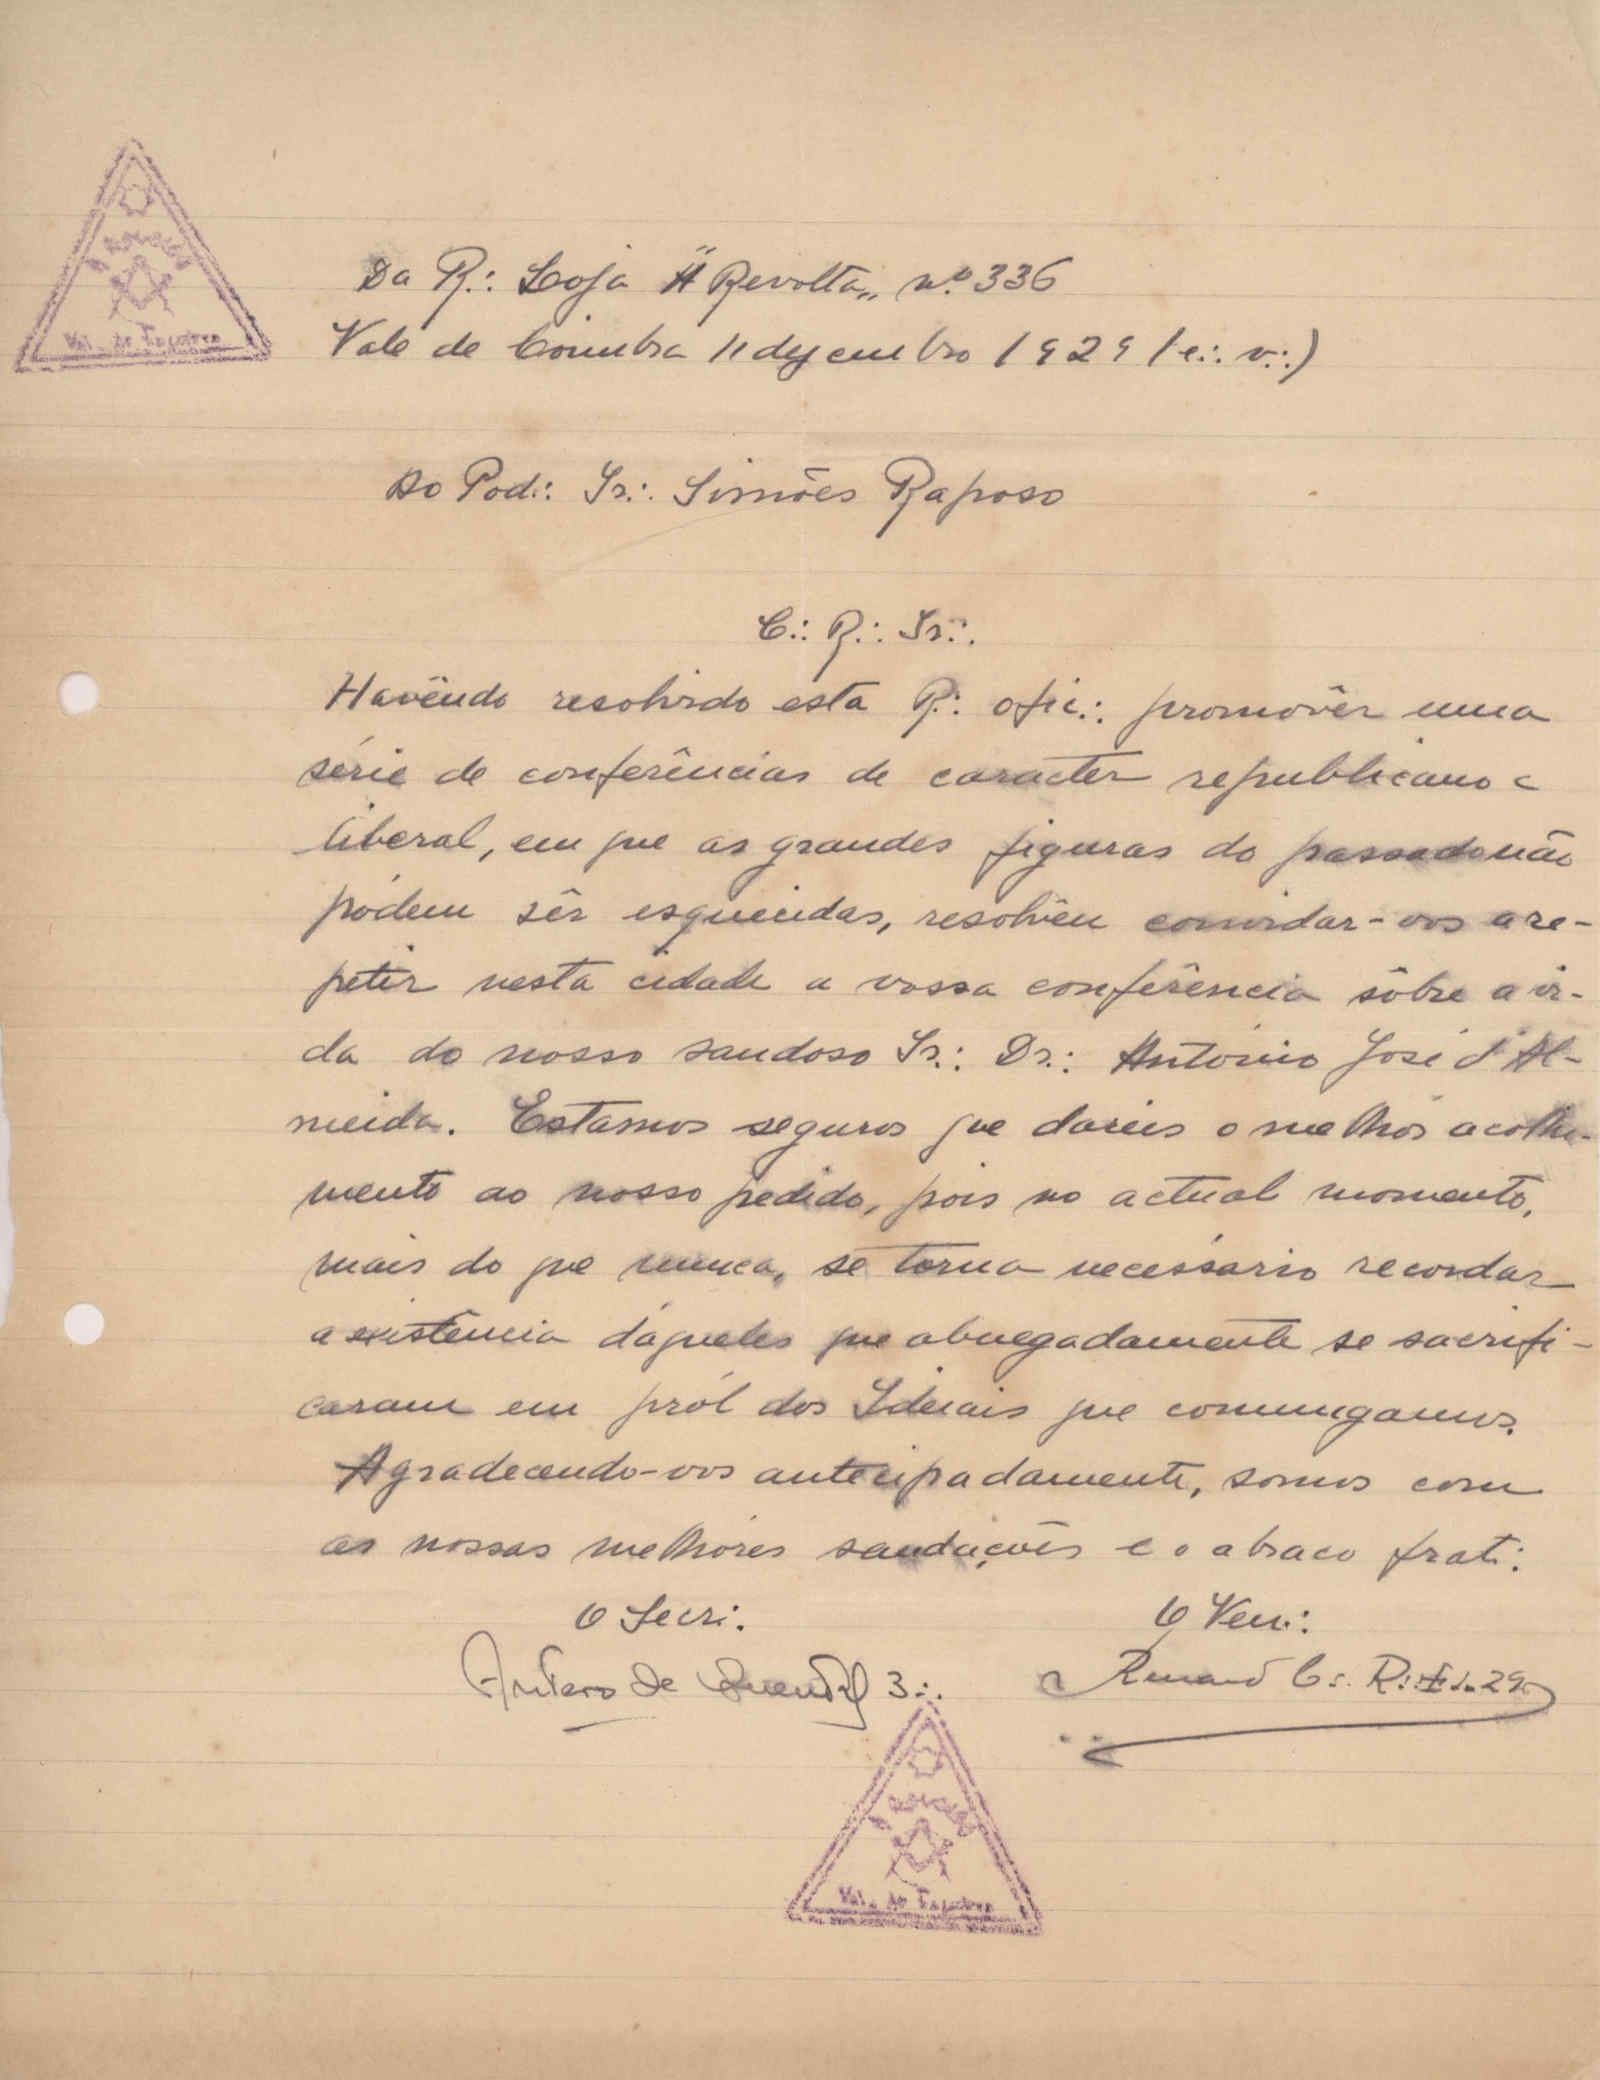 Da R.: Loja "A Revolta„ nº 336
Vale de Coimbra 11 dezembro 1929 (e.: v.:)
Ao Pod.: Ir.: Simões Raposo
C.: R.: Ir.:
Havêndo resolvido esta R.: ofic.: promovêr uma
série de conferências de caracter republicano e
liberal, em que as grandes figuras do passado não
pódem sêr esquecidas, resolvêu convidar-vos a re-
petir nesta cidade a vossa conferência sôbre a vi-
da do nosso saudoso Ir.: Dr.: António José d'Al-
meida. Estamos seguros que dareis o melhór acolhi-
mento ao nosso pedido, pois no actual momento,
mais do que nunca, se torna necessário recordar
a existência dáqueles que abnegadamente se sacrifi-
caram em pról dos Ideiais que comungamos.
Agradecendo-vos antecipadamente, somos com
as nossas melhóres saudações e o abraco frat.:
O Secr.: O Ven.:
Antero de Quental 3.: Renand C.: R.:
Val. de Coimbra
Val. de Coimbra